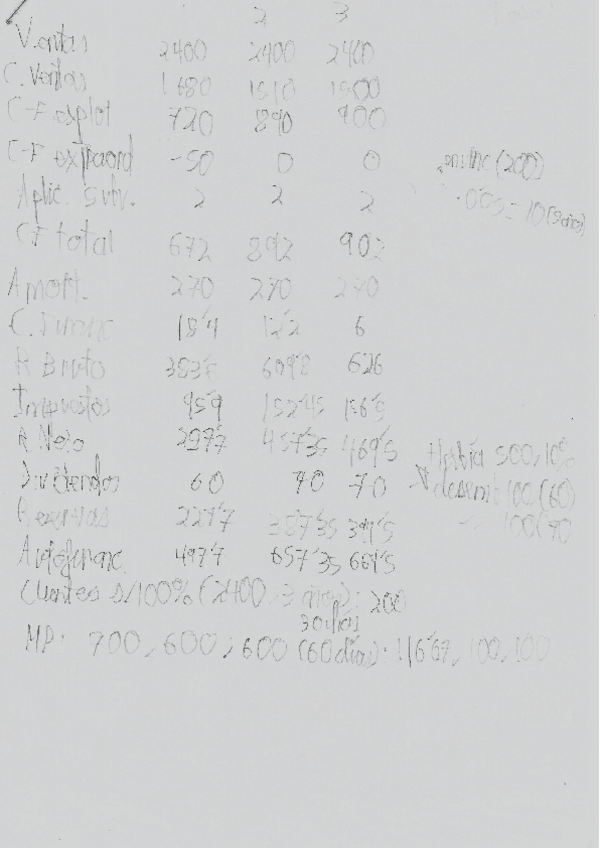 2 3
Ventas 2400 2400 2400
C. Ventas 1680 1510 1500
C-F explot 720 890 900
C-F extraord -50 0 0
(200)
Aplic. Subv. 2 2 2
CF total 672 892 902
Amort. 270 270 270
C. Financ 18'4 12'2 6
R Bruto 383'6 609'8 626
Impuestos 95'9 152'45 156'5
R. Neto 457'35 469'5
Había 500, 10%
Dividendos 60 70 70
100 (60)
Reservas 227'7 387'35 399'5
100 (70
Autofinanc. 497'7 657'35 669'5
Clientes s/100% (2400, 3 años): 200
30 días
MP: 700, 600, 600 (60 días): 116'67, 100, 100